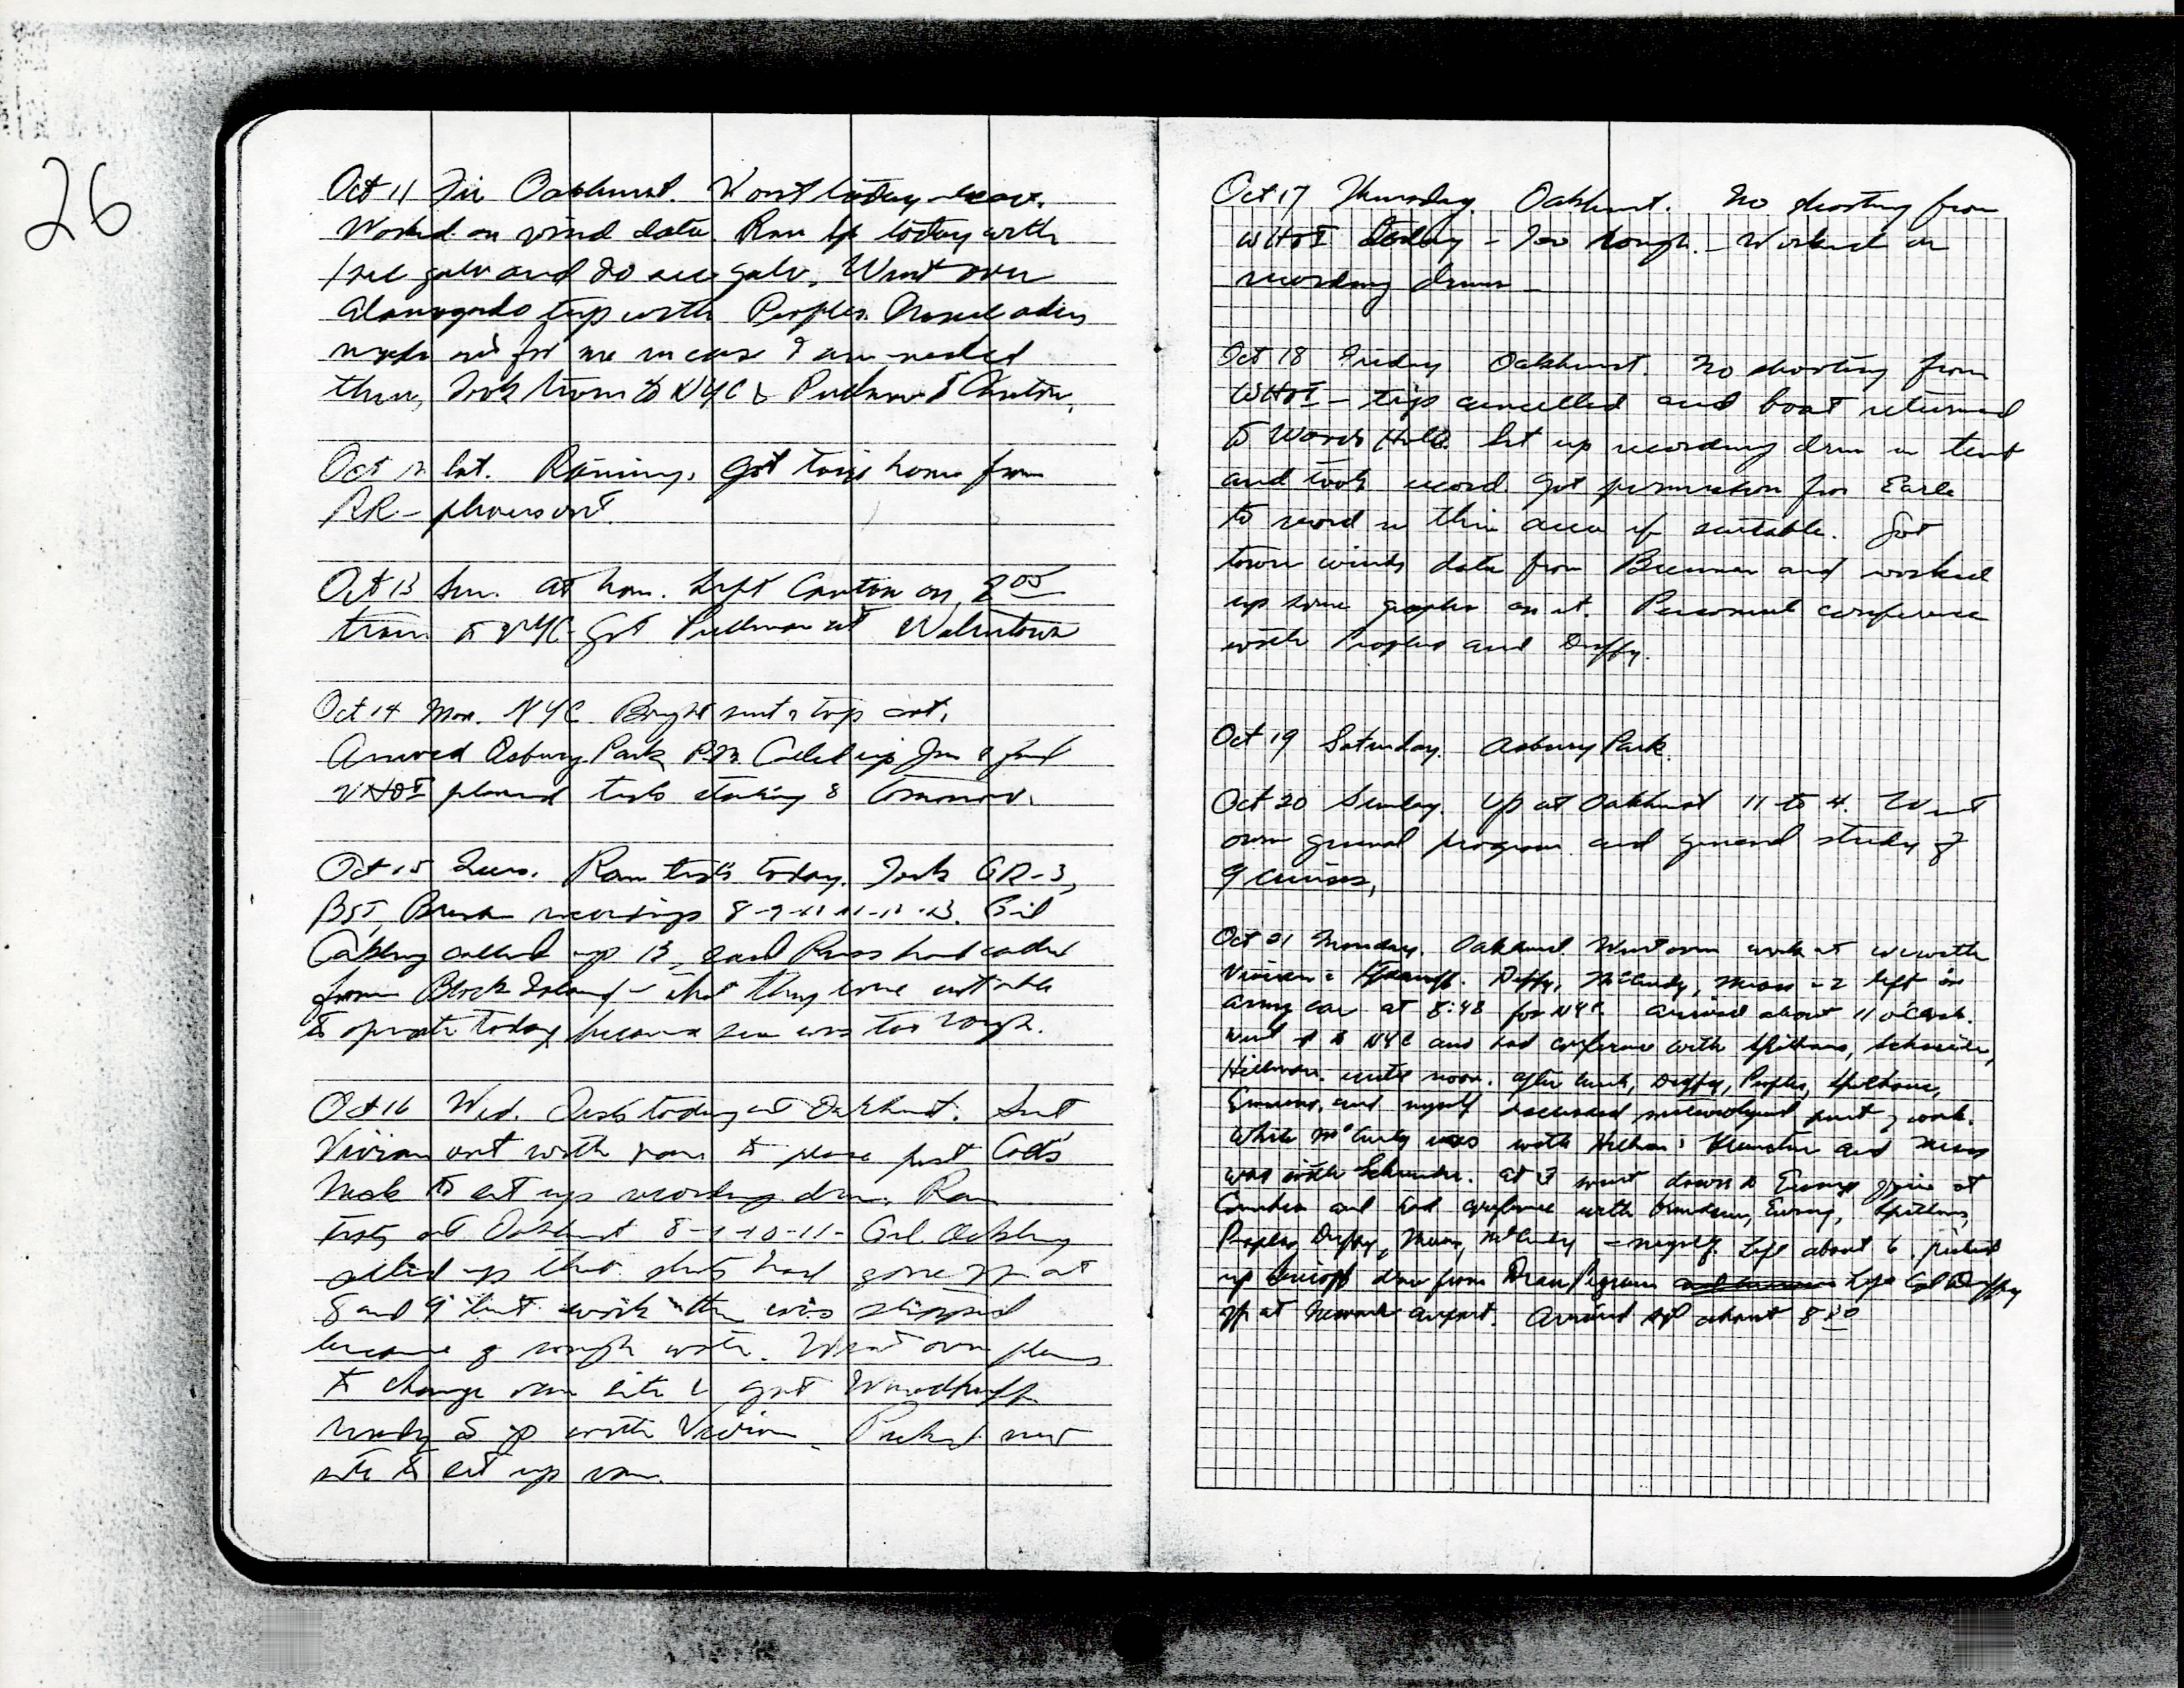 26
Oct 11 Fri Oakhurst. Went today
Worked on wind data. Ran up today with
1 sec galv and 20 sec galv. Went over
Alamogordo trip with Peoples.
out for me in case I am needed
there, Took train to NYC & Pullman to Canton.
Oct 12 Sat. Raining. Got taxi home from
RR –
Oct 13 Sun. At home. Left Canton on 8 00
train to NYC – Got Pullman at Watertown
Oct 14 Mon. NYC. Bought suit & top coat.
Arrived Asbury Park P.M. Called up Jim & find
WHOI planned tests starting 8 tomorrow.
Oct 15 Tues. Ran tests today. Took GR-3,
recordings 8-9-10-11-12-13. Gil
Oakley called up 13, said Russ had called
from Block Island – that they were not able
to operate today because sea was too rough.
Oct 16 Wed. Tests today at Oakhurst. Sent
Vivian out with van to place past Colts
Neck to set up recording drum. Ran
tests at Oakhurst 8-9-10-11- Gil Oakley
called up that shots had gone on at
8 and 9 but work then was stopped
because of rough water. Went over plans
to change van site & got Woodruff
ready to go with Vivian. Picked new
site to set up van.
Oct 17 Thursday. Oakhurst. No shooting from
WHOI today – Too rough. – Worked on
recording drum –
Oct 18 Friday Oakhurst. No shooting from
WHOI – trip cancelled and boat returned
to Woods Hole. Set up recording drum in tent
and took record. Got permission from Earle
to record in this area if suitable. Got
tower winds data from Brennan and worked
up some graphs on it. Personnel conference
with Peoples and Duffy.
Oct 19 Saturday. Asbury Park.
Oct 20 Sunday. Up at Oakhurst 11 to 4. Went
over general program and general study of
9 cruises.
Oct 21 Monday. Oakhurst Went over work with
Vivian & Duffy, McCurdy, Mears left in
army car at 8:48 for NYC. Arrived about 11 o'clock.
Went up to NYU and had conference with Spilhaus, Schneider,
Hillman until noon. After lunch, Duffy, Peoples, Spilhaus,
Emmons, and myself discussed meteorological part of work.
While McCurdy was with Hillman & and Mears
was with Schneider. At 3 went down to Ewings office at
Columbia and had conference with Ewing, Spilhaus,
Peoples, Duffy, Mears, McCurdy & myself. Left about 6. picked
up drum from Left Col Duffy
off at Newark airport. Arrived AP about 8 30